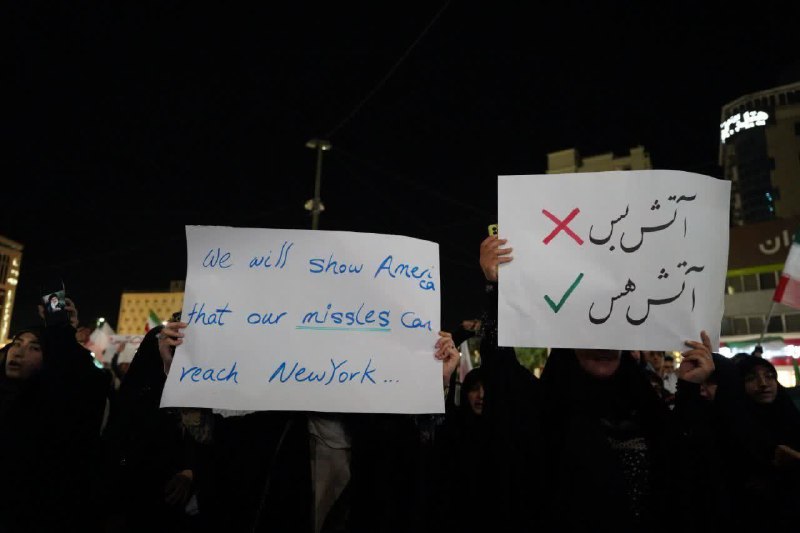 We will show Ameri
ca
that our missles can
reach New York...
آتش بس ❌
آتش هس ✓